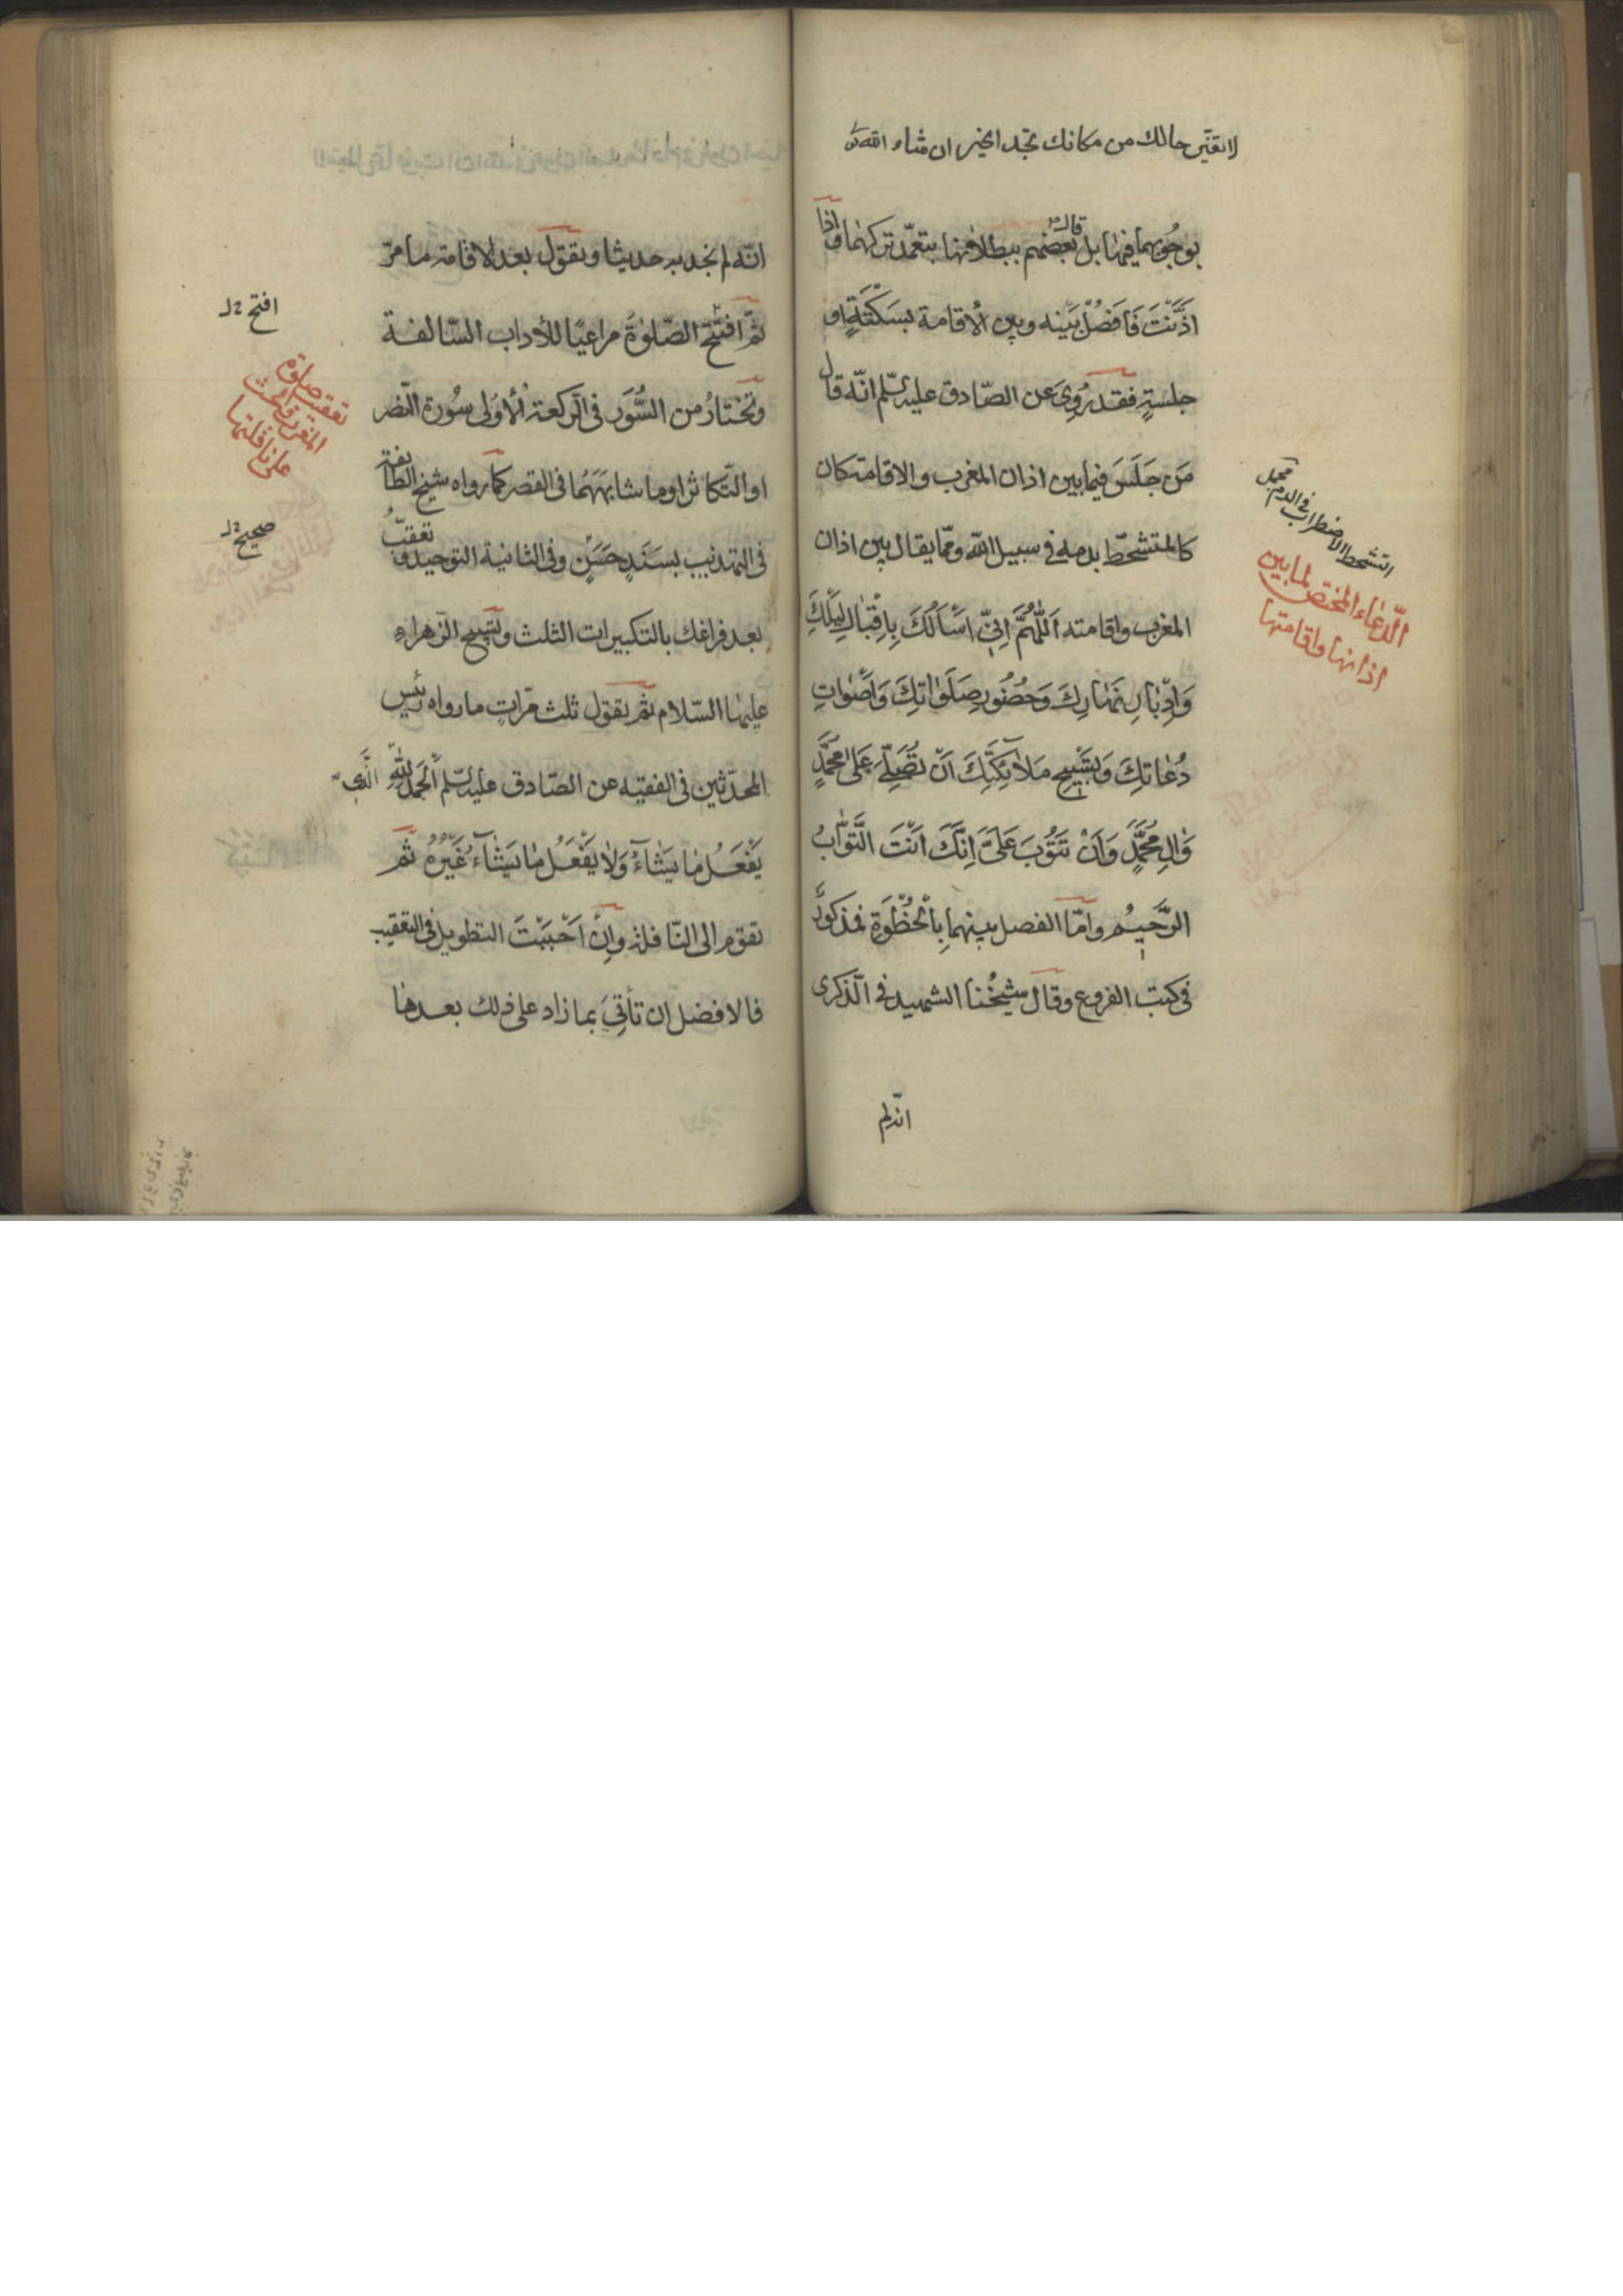 لا تغيّر حالك من مكانك تجد الخير ان شاء الله
بوجُوبهما فيها بل قال بعضهم ببطلانها بتعمّد تركهما واذا
اَذَّنْتَ فَافصُلْ بَيْنه وبين الاقامة بسَكْتَةٍ او
جلسَةٍ فقد رُوِىَ عن الصّادق عليه السّلم انّه قال
مَن جَلَسَ فيما بين اذان المغرب والاقامة كان
كالمتشحّط بدمه فى سبيل الله وممّا يقال بين اذان
المغرب واقامته اَللّٰهُمَّ اِنّى اَسْأَلُكَ بِاِقْبٰالِ لَيْلِكَ
وَاِدْبٰارِ نَهٰارِكَ وَحُضُورِ صَلَوٰاتِكَ وَاَصْوٰاتِ
دُعٰاتِكَ وَتَسْبيحِ مَلاٰئِكَتِكَ اَنْ تُصَلِّىَ عَلىٰ مُحَمَّدٍ
وَاٰلِ مُحَمَّدٍ وَاَنْ تَتُوبَ عَلَىَّ اِنَّكَ اَنْتَ التَّوّٰابُ
الرَّحيمُ وامّا الفصل بينهما بِالْخُطْوَةِ فمذكورٌ
فى كتب الفروع وقال شيخُنا الشهيد فى الذّكرى
التشحط الاضطراب فى الدم
الدّعٰاء المختص لمابين
اذانها واقامتها
انّه لم
انّه لم نجد به حديثا وتقول بعد الاقامة ما مرّ
ثمّ افتتح الصّلوٰةَ مراعيًا للأداب السّالفة
وتختارُ من السُّوَر فى الرّكعة الأولى سُورة النّصر
او التّكاثر او ما شابَهَهُما فى القصر كما رواه شيخ الطّائفة
فى التهذيب بسَنَدٍ حَسَنٍ وفى الثانية التوحيد وتعقّبُ
بعد فراغك بالتكبيرات الثلث وتسبيح الزّهراء
عليها السّلام ثمّ تقول ثلث مرّاتٍ ما رواه رئيس
المحدّثين فى الفقيه عن الصّادق عليه السّلم اَلْحَمْدُ لِلّٰهِ الَّذى
يَفْعَلُ مٰا يَشٰآءُ وَلاٰ يَفْعَلُ مٰا يَشٰآءُ غَيْرُهُ ثمّ
تقوم الى النّافلة وان اَحْبَبْتَ التطويل فى التعقيب
فالافضل ان تأتِىَ بما زاد على ذلك بعدها
افتح
تعقيب صلوة
المغرب
على نافلتها
صحيح